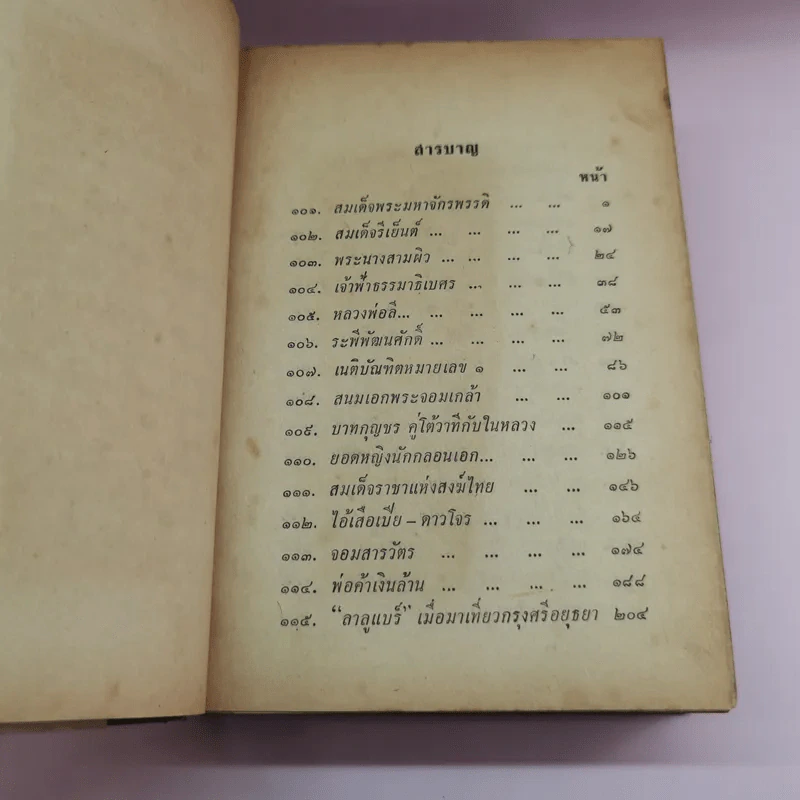 สารบาญ
หน้า
๑๐๑. สมเด็จพระมหาจักรพรรดิ ... ... ๑
๑๐๒. สมเด็จรีเย็นต์ ... ... ... ... ๑๗
๑๐๓. พระนางสามผิว ... ... ... ... ๒๔
๑๐๔. เจ้าฟ้าธรรมาธิเบศร ... ... ... ๓๘
๑๐๕. หลวงพ่อลี... ... ... ... ... ๕๓
๑๐๖. ระพีพัฒนศักดิ์ ... ... ... ... ๗๒
๑๐๗. เนติบัณฑิตหมายเลข ๑ ... ... ๘๖
๑๐๘. สนมเอกพระจอมเกล้า ... ... ๑๐๑
๑๐๙. บาทกุญชร คู่โต้วาทีกับในหลวง ... ๑๑๕
๑๑๐. ยอดหญิงนักกลอนเอก... ... ... ๑๒๖
๑๑๑. สมเด็จราชาแห่งสงฆ์ไทย ... ... ๑๔๖
๑๑๒. ไอ้เสือเบีย – ดาวโจร ... ... ... ๑๖๔
๑๑๓. จอมสารวัตร ... ... ... ... ๑๗๔
๑๑๔. พ่อค้าเงินล้าน ... ... ... ... ๑๘๘
๑๑๕. “ลาลูแบร์” เมื่อมาเที่ยวกรุงศรีอยุธยา ๒๐๔